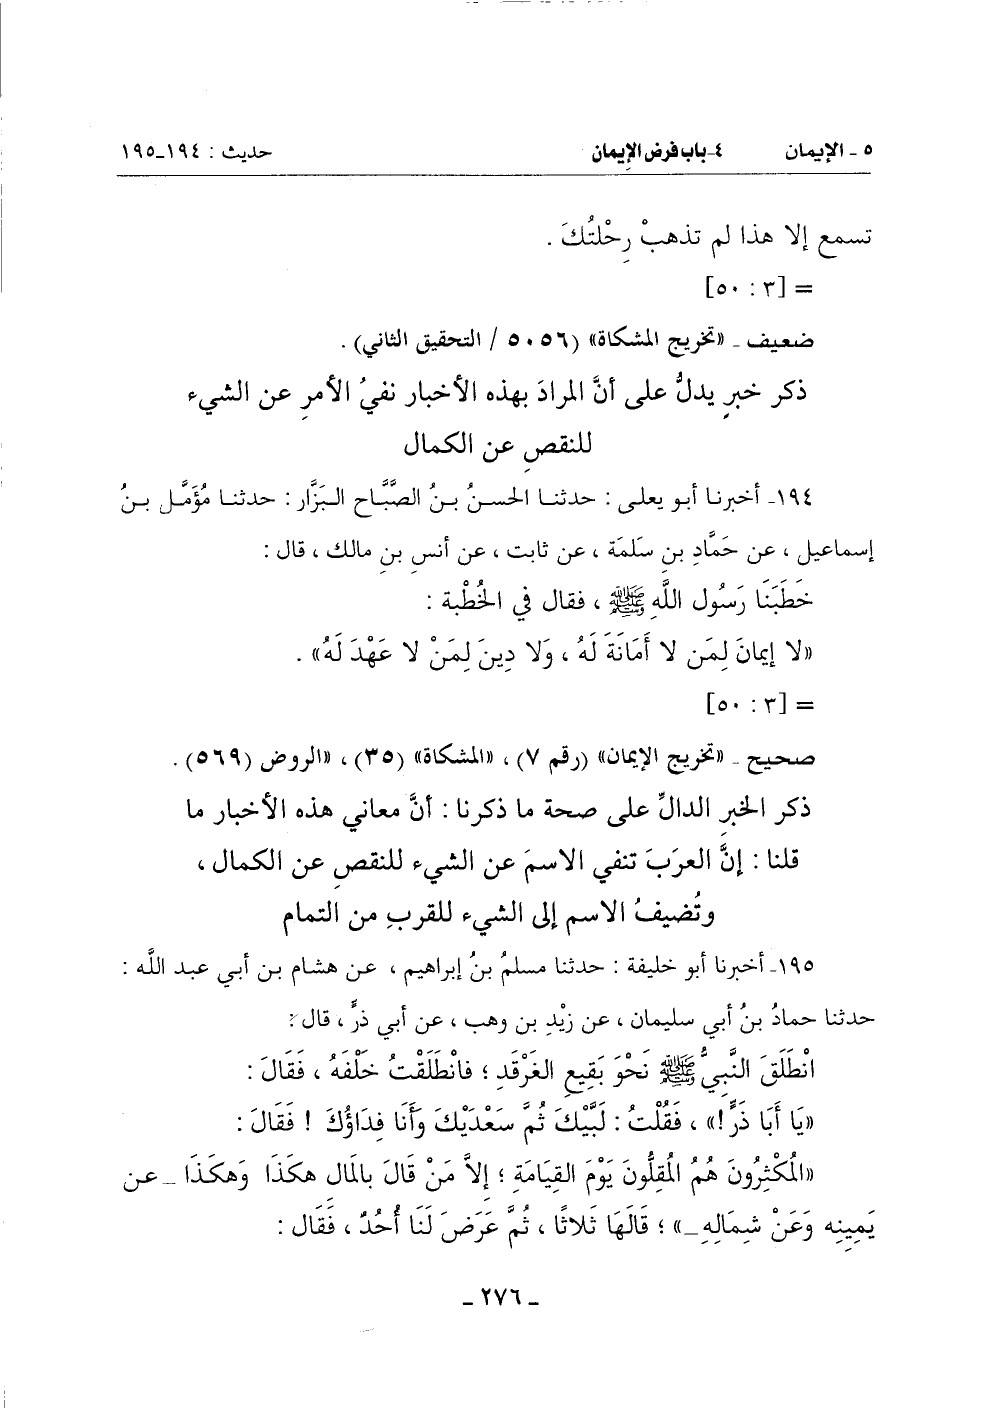 ٥ ـ الإيمان ٤ـ باب فرض الإيمان حديث : ١٩٤ـ١٩٥
تسمع إلا هذا لم تذهبْ رِحْلتُكَ .
= [٣ : ٥٠]
ضعيف ـ «تخريج المشكاة» (٥٠٥٦ / التحقيق الثاني) .
ذكر خبرٍ يدلُّ على أنَّ المرادَ بهذه الأخبار نفيُ الأمرِ عن الشيء
للنقصِ عن الكمال
١٩٤ـ أخبرنا أبو يعلى : حدثنا الحسنُ بنُ الصَّبَّاح البَزَّار : حدثنا مُؤَمَّل بنُ
إسماعيل ، عن حَمَّادِ بنِ سَلَمَة ، عن ثابت ، عن أنسِ بنِ مالك ، قال :
خَطَبَنَا رَسُول اللَّهِ ﷺ ، فقال في الخُطْبة :
«لا إيمانَ لِمَن لا أَمَانَةَ لَهُ ، وَلا دِينَ لِمَنْ لا عَهْدَ لَهُ» .
= [٣ : ٥٠]
صحيح ـ «تخريج الإيمان» (رقم ٧) ، «المشكاة» (٣٥) ، «الروض (٥٦٩) .
ذكر الخبرِ الدالِّ على صحة ما ذكرنا : أنَّ معاني هذه الأخبار ما
قلنا : إنَّ العرَبَ تنفي الاسمَ عن الشيء للنقصِ عن الكمال ،
وتُضيفُ الاسم إلى الشيء للقربِ من التمام
١٩٥ـ أخبرنا أبو خليفة : حدثنا مسلمُ بنُ إبراهيم ، عن هشام بن أبي عبد الله :
حدثنا حمادُ بنُ أبي سليمان ، عن زيْدِ بن وهب ، عن أبي ذرٍّ ، قال :
انْطَلَقَ النَّبيُّ ﷺ نَحْوَ بَقِيعِ الغَرْقَدِ ؛ فانْطَلَقْتُ خَلْفَهُ ، فَقَالَ :
«يَا أَبَا ذَرٍّ!» ، فَقُلْتُ : لَبَّيْكَ ثُمَّ سَعْدَيْكَ وَأَنَا فِدَاؤُكَ ! فَقَالَ :
«المُكْثِرُونَ هُمُ المُقِلُّونَ يَوْمَ القِيَامَةِ ؛ إلاَّ مَنْ قَالَ بالمَال هكَذَا وَهكَذَا ـ عن
يَمِينِه وَعَنْ شِمَالِهِ ـ» ؛ قَالَهَا ثَلاثًا ، ثُمَّ عَرَضَ لَنَا أُحُدٌ ، فَقَال :
ـ ٢٧٦ ـ